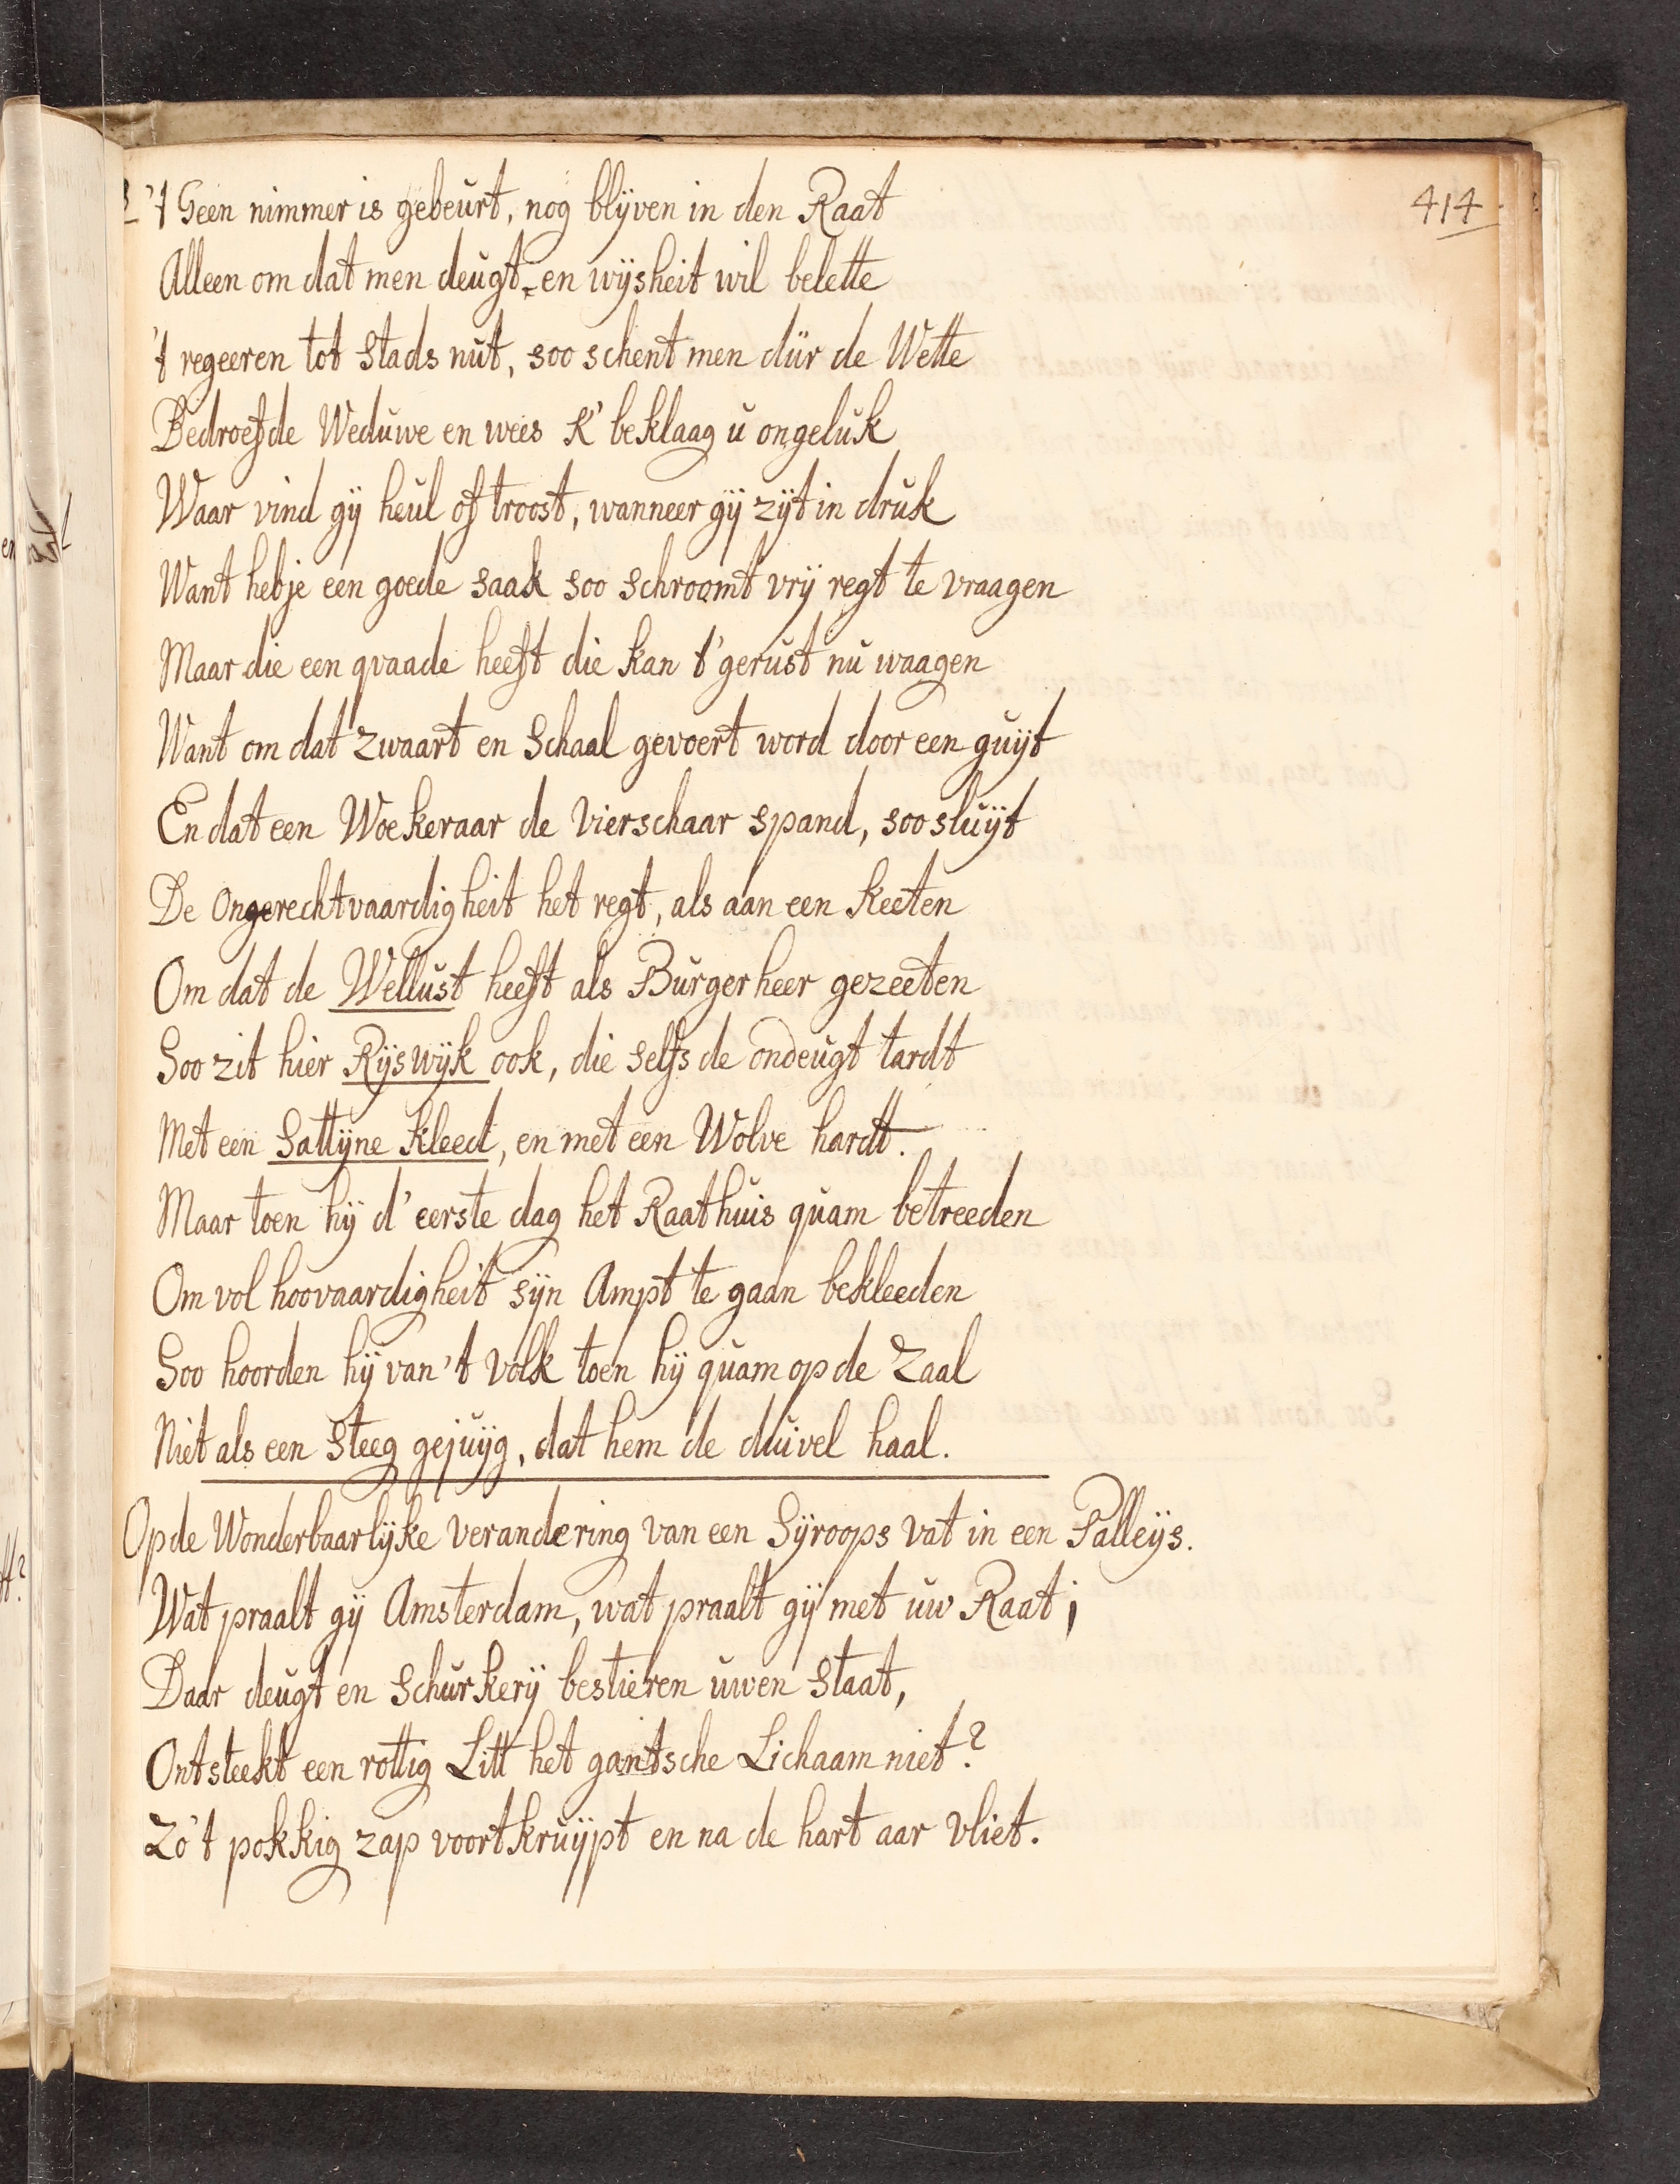 414
't Geen nimmer is gebeurt, nog blyven in den Raat
Alleen om dat men deugt en wysheit wil belette
't regeeren tot Stads nut, soo schent men dur de Wette
Bedroefde Weduwe en wees K' beklaag u ongeluk
Waar vind gy heul of troost, wanneer gy zyt in druk
Want hebje een goede saak soo schroomt vry regt te vraagen
Maar die een qvaade heeft die kan t' gerust nu waagen
Want om dat zwaart en Schaal gevoert word door een guyt
En dat een Woekeraar de Vierschaar spand, soo sluyt
De Ongerechtvaardigheit het regt, als aan een Keeten
Om dat de Wellust heeft als Burgerheer gezeeten
Soo zit hier Ryswyk ook, die selfs de ondeugt tardt
Met een Sattyne Kleed, en met een Wolve hardt.
Maar toen hy d' eerste dag het Raathuis quam betreeden
Om vol hoovaardigheit syn Ampt te gaan bekleeden
Soo hoorden hy van 't Volk toen hy quam op de Zaal
Niet als een Steeg gejuyg, dat hem de duivel haal.
Op de Wonderbaarlyke verandering van een Syroops vat in een Palleys.
Wat praalt gy Amsterdam, wat praalt gy met uw Raat;
Daar deugt en Schurkery bestieren uwen Staat,
Ontsteekt een rottig Litt het gantsche Lichaam niet?
Zo 't pokkig zap voort kruypt en na de hart aar vliet.